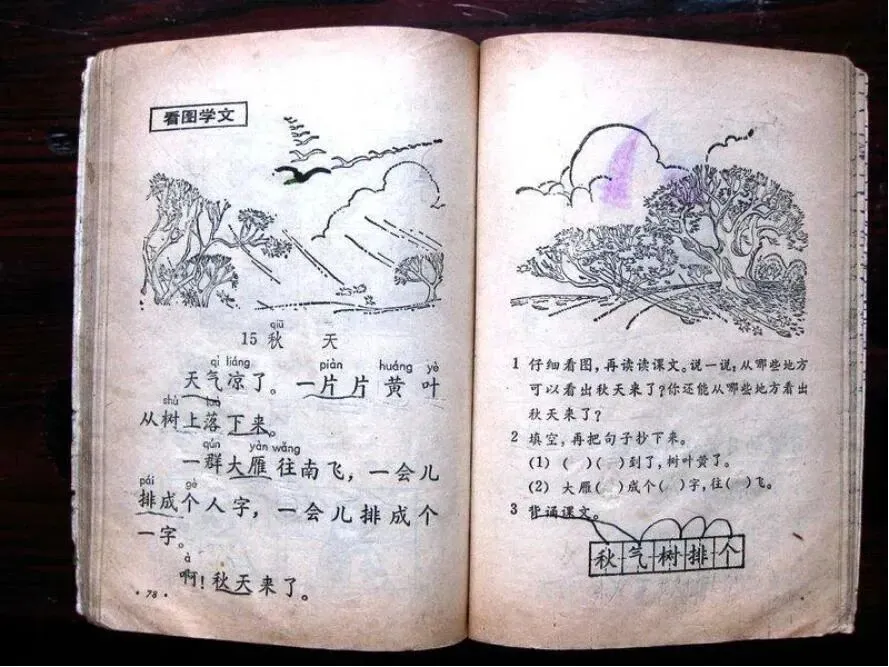 看图学文
qiū
15 秋 天
qì liáng piàn huáng yè
天气凉了。一片片黄叶
shù luò
从树上落下来。
qún yàn wǎng
一群大雁往南飞，一会儿
pái gè
排成个人字，一会儿排成个
一字。
à
啊！秋天来了。
·78·
1 仔细看图，再读读课文。说一说：从哪些地方
可以看出秋天来了？你还能从哪些地方看出
秋天来了？
2 填空，再把句子抄下来。
(1) ( )( )到了，树叶黄了。
(2) 大雁( )成个( )字，往( )飞。
3 背诵课文。
秋气树排个